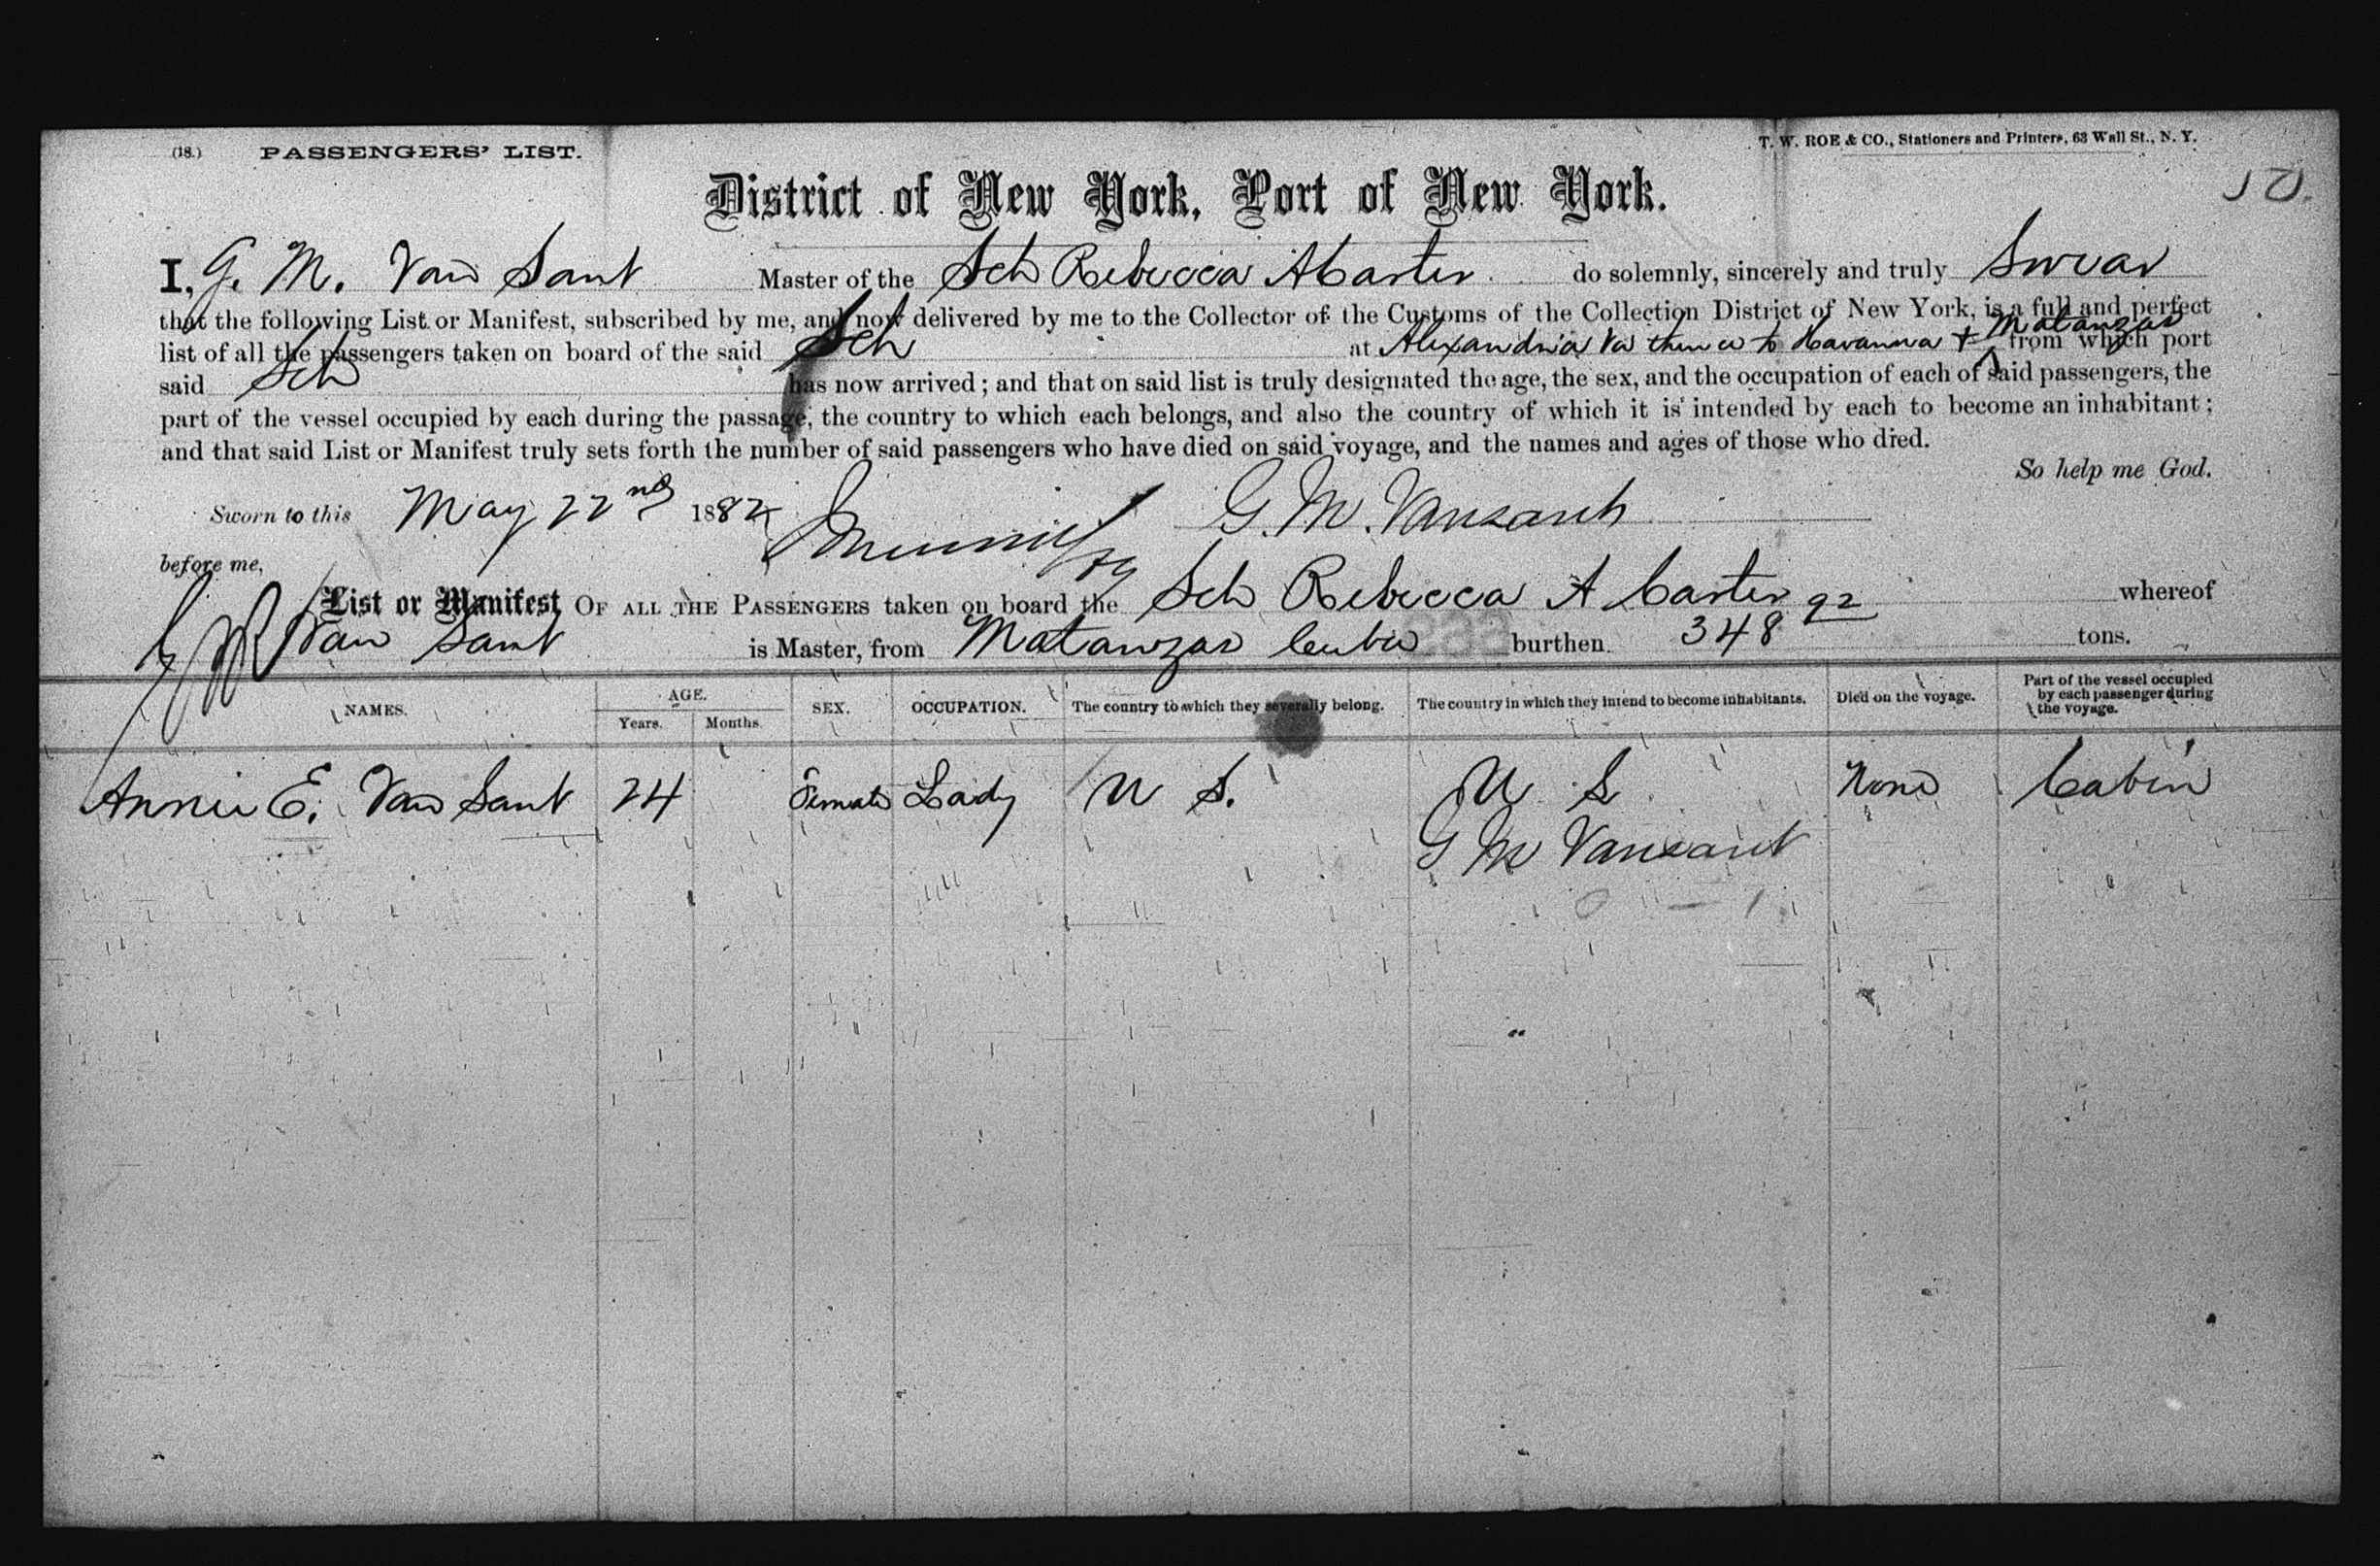 (18.) PASSENGERS' LIST.
T. W. ROE & CO., Stationers and Printers, 63 Wall St., N. Y.
District of New York, Port of New York.
I, G. M. Van Sant Master of the Sch Rebecca A Carter do solemnly, sincerely and truly Swear
that the following List or Manifest, subscribed by me, and now delivered by me to the Collector of the Customs of the Collection District of New York, is a full and perfect
list of all the passengers taken on board of the said Sch at Alexandria Va thence to Havanna & Matanzas from which port
said Sch has now arrived; and that on said list is truly designated the age, the sex, and the occupation of each of said passengers, the
part of the vessel occupied by each during the passage, the country to which each belongs, and also the country of which it is intended by each to become an inhabitant;
and that said List or Manifest truly sets forth the number of said passengers who have died on said voyage, and the names and ages of those who died.
So help me God.
Sworn to this May 22nd 1882 G. M. Vansant
before me,
List or Manifest OF ALL THE PASSENGERS taken on board the Sch Rebecca A Carter whereof
G M Van Sant is Master, from Matanzas Cuba burthen 348 92 tons.
NAMES. AGE. Years. Months. SEX. OCCUPATION. The country to which they severally belong. The country in which they intend to become inhabitants. Died on the voyage. Part of the vessel occupied by each passenger during the voyage.
Annie E. Van Sant 24 Female Lady U S. U S None Cabin
G M Vansant